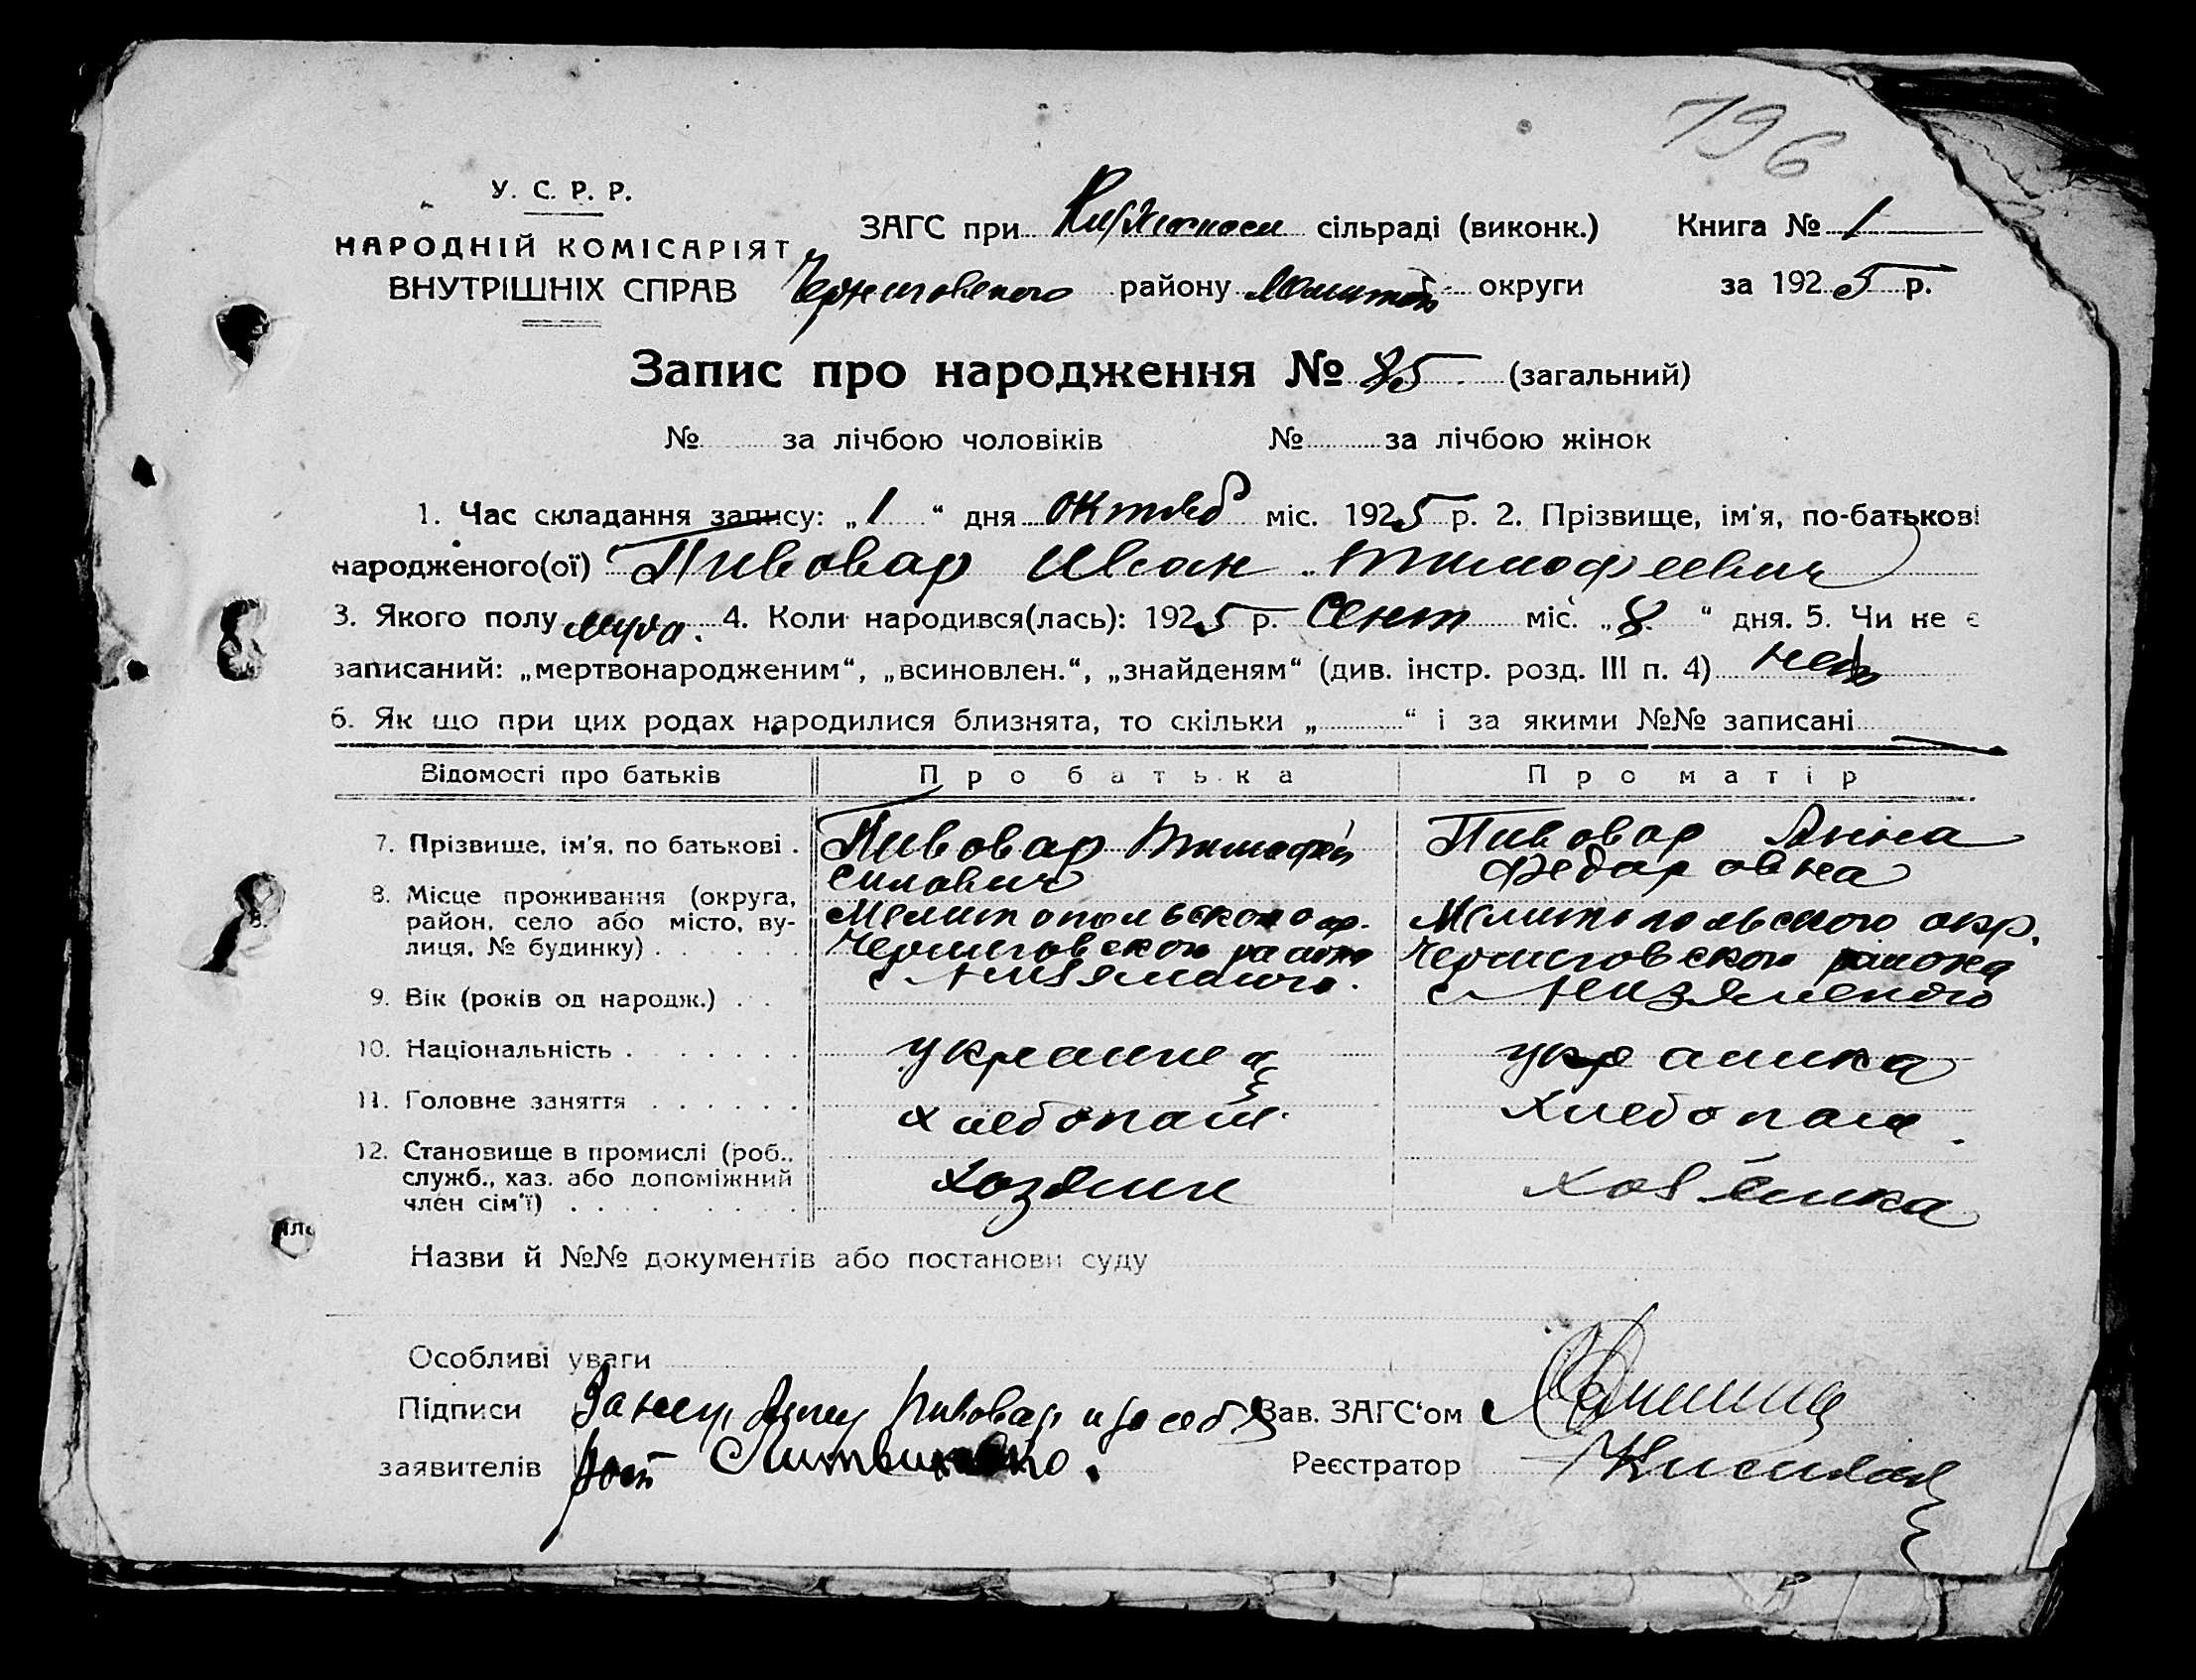 196
У. С. Р. Р.
НАРОДНІЙ КОМІСАРІЯТ
ВНУТРІШНІХ СПРАВ
ЗАГС при сільраді (виконк.) Книга № 1
Черниговского району Мелитоп округи за 1925 р.
Запис про народження № 85 (загальний)
№ за лічбою чоловіків № за лічбою жінок
1. Час складання запису: „1“ дня октяб міс. 1925 р. 2. Прізвище, ім'я, по-батькові
народженого(ої) Пивовар Иван Тимофеевич
3. Якого полу 4. Коли народився(лась): 1925 р. Сент міс. „8“ дня. 5. Чи не є
записаний: „мертвонародженим“, „всиновлен.“, „знайденям“ (див. інстр. розд. III п. 4) нет
6. Як що при цих родах народилися близнята, то скільки „ “ і за якими №№ записані
Відомості про батьків Про батька Про матір
7. Прізвище, ім'я, по батькові . Пивовар Тимофей Силович Пивовар Анна Федаровна
8. Місце проживання (округа, район, село або місто, вулиця, № будинку) Мелитопольского ок. Черниговского района с Мелитопольского окр. Черниговского района с
9. Вік (років од народж.)
10. Національність украинец украинка
11. Головне заняття хлебопаш. хлебопаш.
12. Становище в промислі (роб., служб., хаз. або допоміжний член сім'ї) хозяин хозяйка
Назви й №№ документів або постанови суду
Особливі уваги
Підписи Пивовар и за себя Зав. ЗАГС'ом
заявителів Литвиненко. Реєстратор